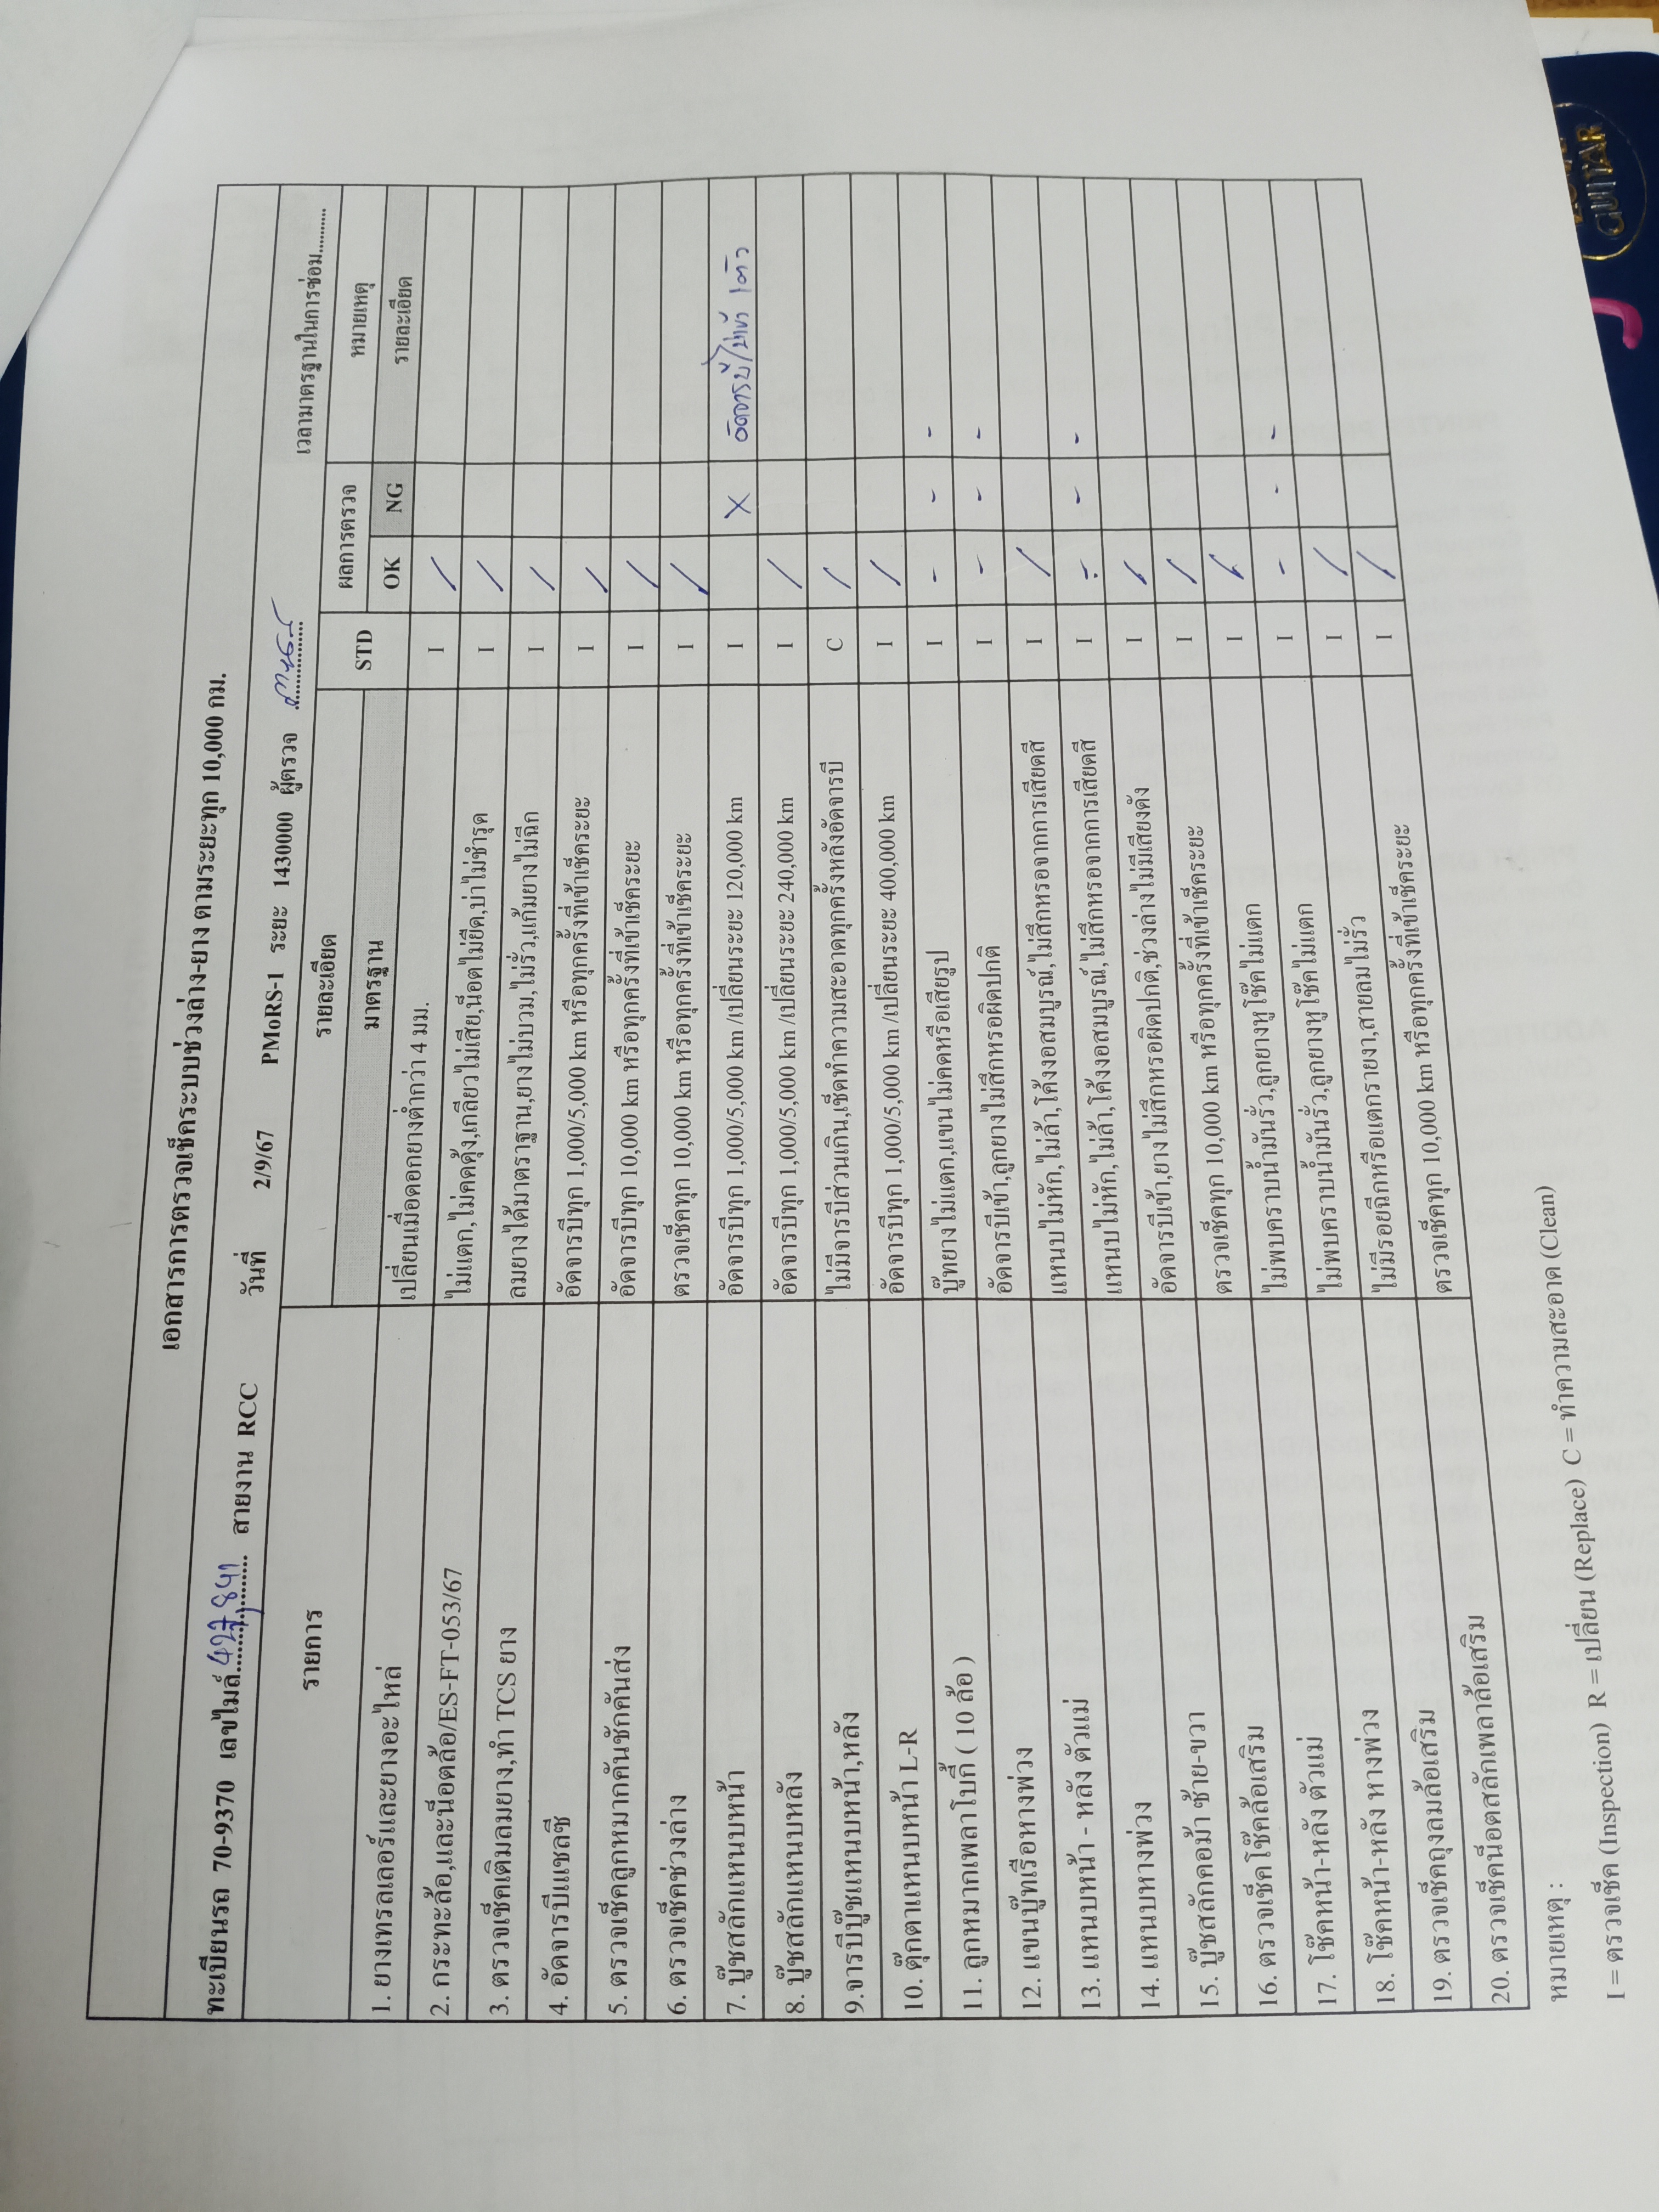 เอกสารการตรวจเช็คระบบช่วงล่าง-ยาง ตามระยะทุก 10,000 กม.
ทะเบียนรถ 70-9370 เลขไมล์ 427,841 สายงาน RCC วันที่ 2/9/67 PMoRS-1 ระยะ 1430000 ผู้ตรวจ
รายการ รายละเอียด เวลามาตรฐานในการซ่อม..........
มาตรฐาน STD ผลการตรวจ หมายเหตุ
OK NG รายละเอียด
1. ยางเทรลเลอร์และยางอะไหล่ เปลี่ยนเมื่อดอกยางต่ำกว่า 4 มม. I /
2. กระทะล้อ,และน็อตล้อ/ES-FT-053/67 ไม่แตก,ไม่คดคุ้ง,เกลียวไม่เสีย,น็อตไม่ยืด,บ่าไม่ชำรุด I /
3. ตรวจเช็คเติมลมยาง,ทำ TCS ยาง ลมยางได้มาตราฐาน,ยางไม่บวม,ไม่รั่ว,แก้มยางไม่ฉีก I /
4. อัดจารบีแชลซี อัดจารบีทุก 1,000/5,000 km หรือทุกครั้งที่เข้าเช็คระยะ I /
5. ตรวจเช็คลูกหมากคันชักคันส่ง อัดจารบีทุก 10,000 km หรือทุกครั้งที่เข้าเช็คระยะ I /
6. ตรวจเช็คช่วงล่าง ตรวจเช็คทุก 10,000 km หรือทุกครั้งที่เข้าเช็คระยะ I /
7. บู๊ชสลักแหนบหน้า อัดจารบีทุก 1,000/5,000 km /เปลี่ยนระยะ 120,000 km I X อัดจารบีไม่เข้า 1 ตัว
8. บู๊ชสลักแหนบหลัง อัดจารบีทุก 1,000/5,000 km /เปลี่ยนระยะ 240,000 km I /
9.จารบีบู๊ชแหนบหน้า,หลัง ไม่มีจารบีส่วนเกิน,เช็ดทำความสะอาดทุกครั้งหลังอัดจารบี C /
10. ตุ๊กตาแหนบหน้า L-R อัดจารบีทุก 1,000/5,000 km /เปลี่ยนระยะ 400,000 km I /
11. ลูกหมากเพลาโบกี้ ( 10 ล้อ ) บู๊ทยางไม่แตก,แขนไม่คดหรือเสียรูป I - - -
12. แขนบู๊ทเรือหางพ่วง อัดจารบีเข้า,ลูกยางไม่สึกหรอผิดปกติ I - - -
13. แหนบหน้า - หลัง ตัวแม่ แหนบไม่หัก,ไม่ล้า,โค้งงอสมบูรณ์,ไม่สึกหรอจากการเสียดสี I /
14. แหนบหางพ่วง แหนบไม่หัก,ไม่ล้า,โค้งงอสมบูรณ์,ไม่สึกหรอจากการเสียดสี I - - -
15. บู๊ชสลักคอม้า ซ้าย-ขวา อัดจารบีเข้า,ยางไม่สึกหรอผิดปกติ,ช่วงล่างไม่มีเสียงดัง I /
16. ตรวจเช็คโช๊คล้อเสริม ตรวจเช็คทุก 10,000 km หรือทุกครั้งที่เข้าเช็คระยะ I /
17. โช๊คหน้า-หลัง ตัวแม่ ไม่พบคราบน้ำมันรั่ว,ลูกยางหูโช๊คไม่แตก I /
18. โช๊คหน้า-หลัง หางพ่วง ไม่พบคราบน้ำมันรั่ว,ลูกยางหูโช๊คไม่แตก I - - -
19. ตรวจเช็คถุงลมล้อเสริม ไม่มีรอยฉีกหรือแตกรายงา,สายลมไม่รั่ว I /
20. ตรวจเช็คน็อตสลักเพลาล้อเสริม ตรวจเช็คทุก 10,000 km หรือทุกครั้งที่เข้าเช็คระยะ I /
หมายเหตุ :
I = ตรวจเช็ค (Inspection) R = เปลี่ยน (Replace) C = ทำความสะอาด (Clean)
GUITAR